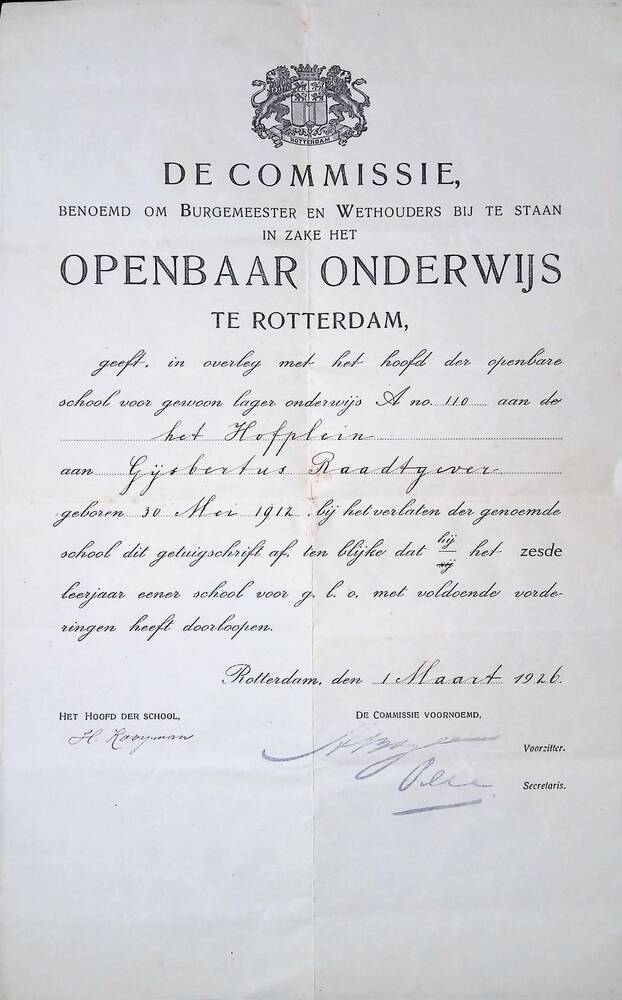 ROTTERDAM
DE COMMISSIE,
BENOEMD OM BURGEMEESTER EN WETHOUDERS BIJ TE STAAN
IN ZAKE HET
OPENBAAR ONDERWIJS
TE ROTTERDAM,
geeft, in overleg met het hoofd der openbare
school voor gewoon lager onderwijs A no. 110 aan de
het Hofplein
aan Gijsbertus Raadtgever
geboren 30 Mei 1912, bij het verlaten der genoemde
school dit getuigschrift af, ten blijke dat hij/zij het zesde
leerjaar eener school voor g. l. o. met voldoende vorde-
ringen heeft doorloopen.
Rotterdam, den 1 Maart 1926.
HET HOOFD DER SCHOOL,
DE COMMISSIE VOORNOEMD,
H. Kooyman
Voorzitter.
Secretaris.